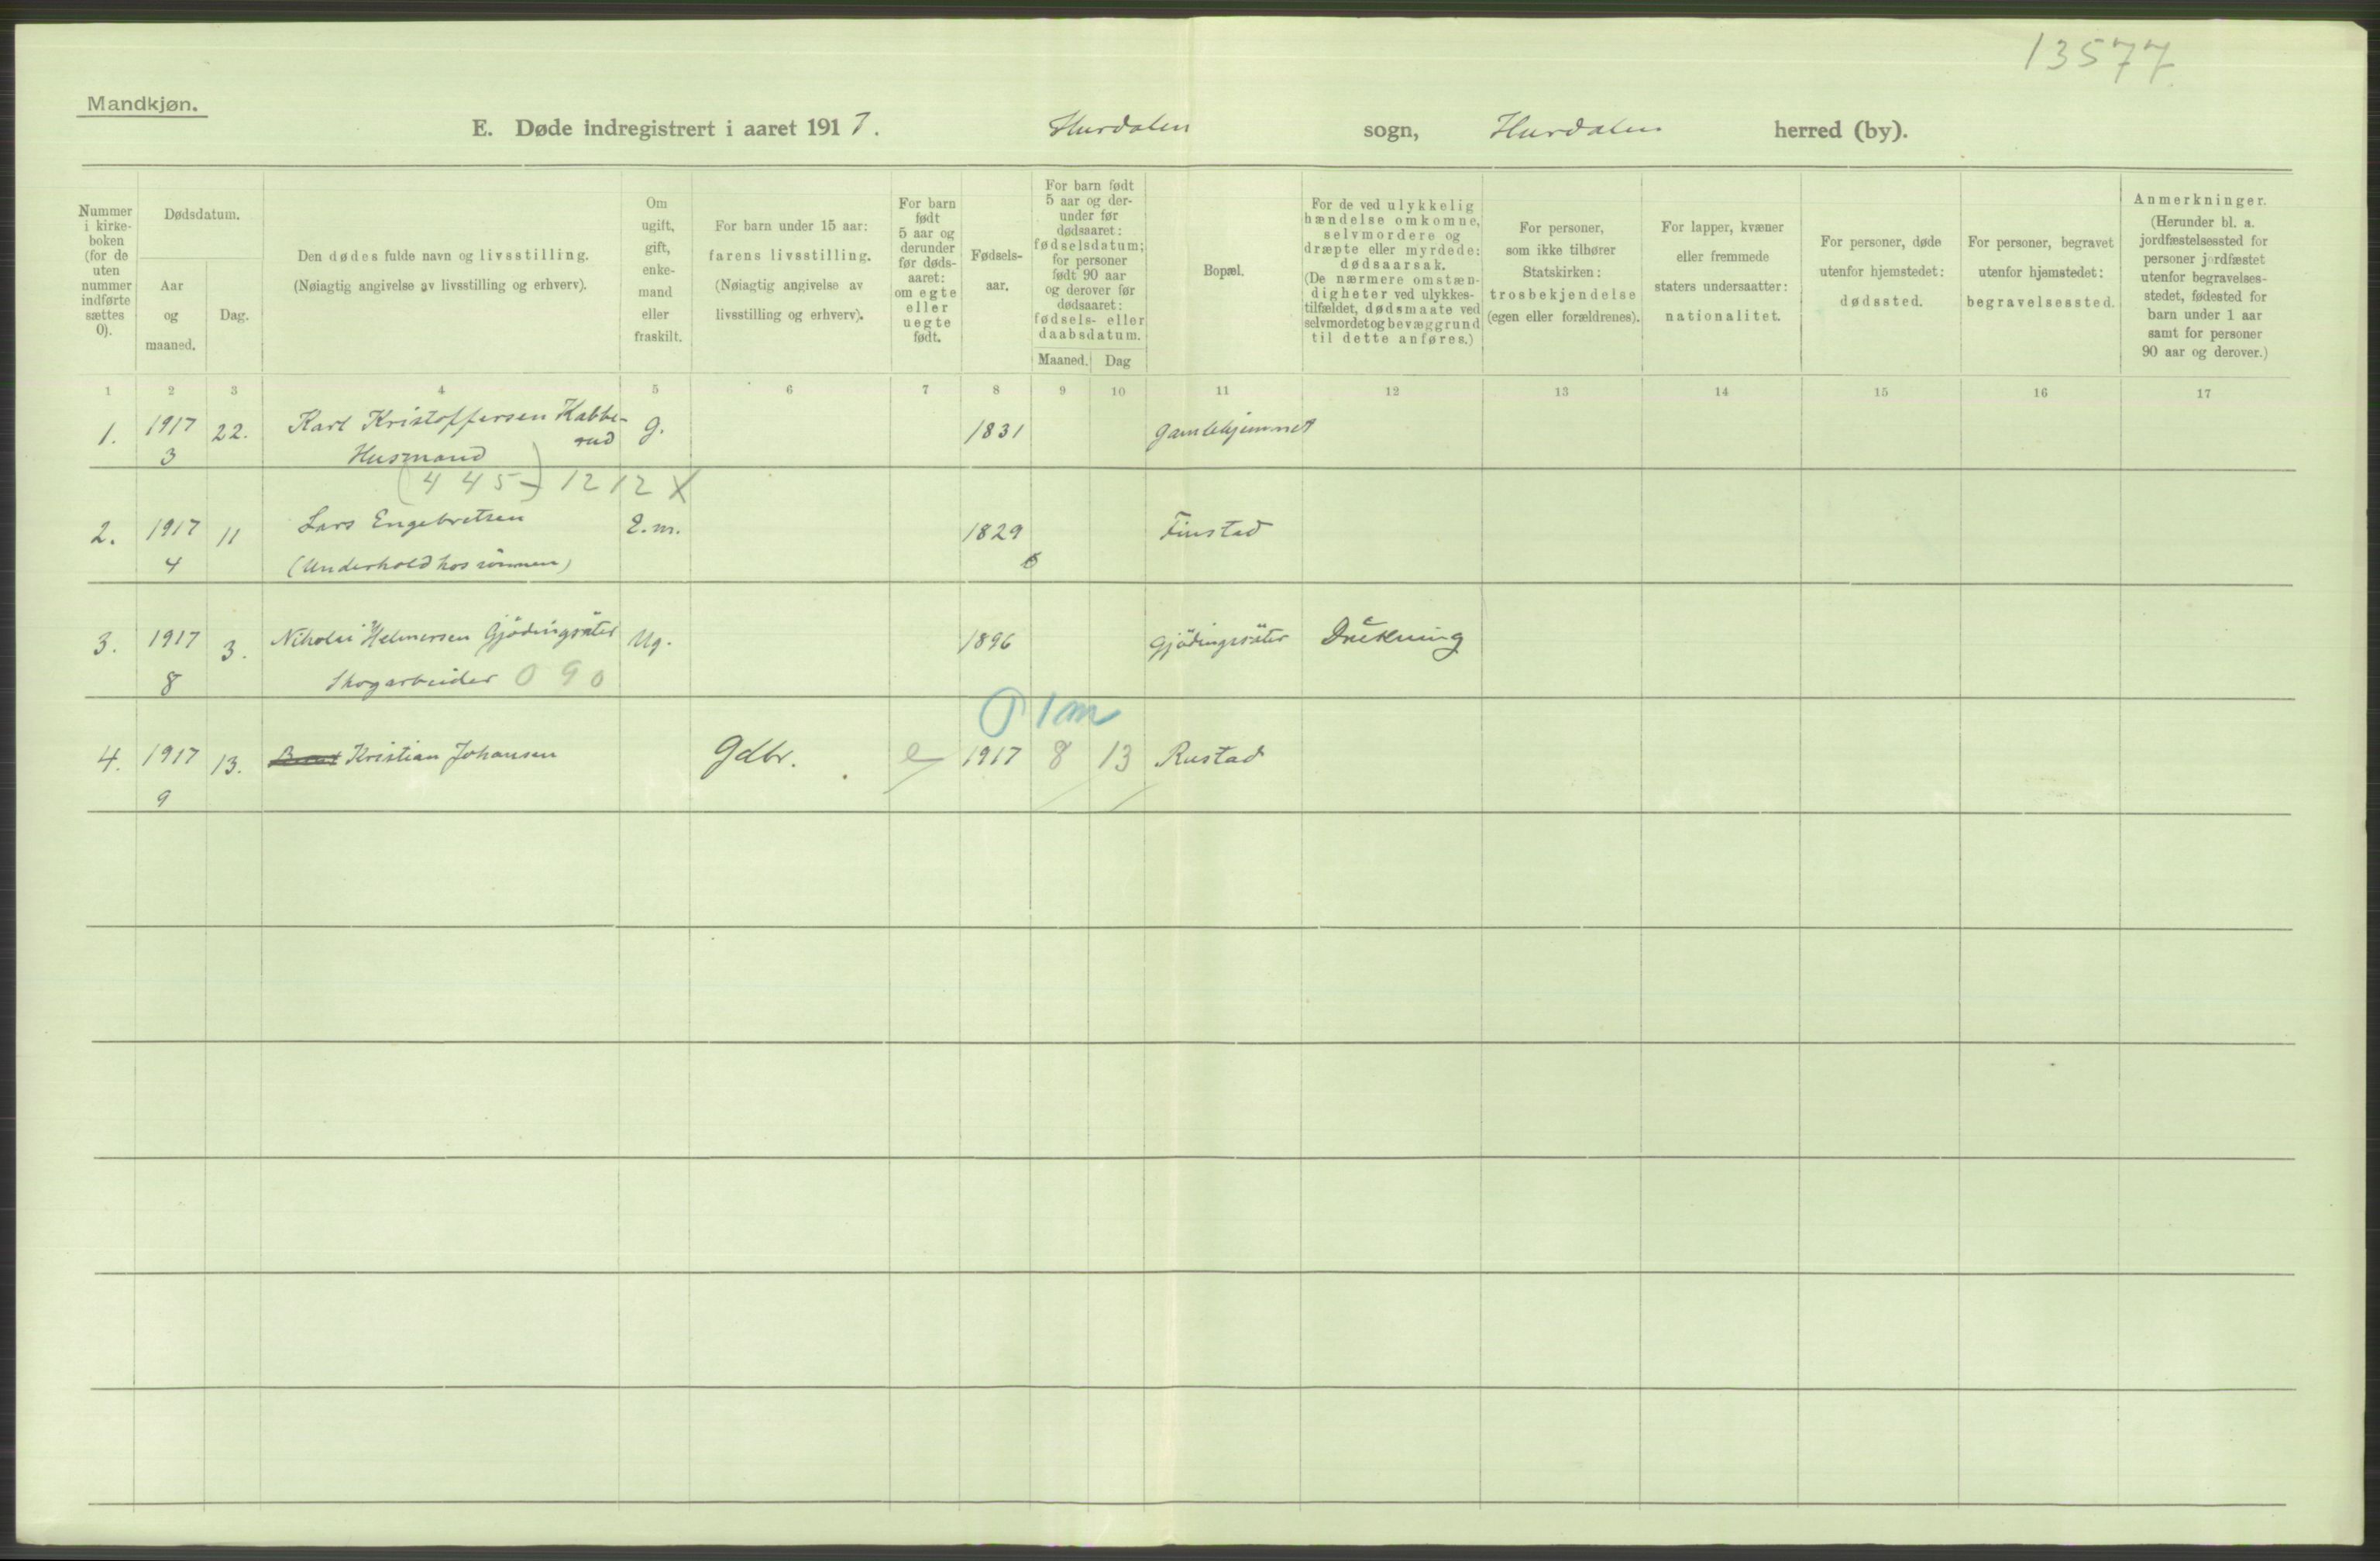 13577
Mandkjøn.
E. Døde indregistrert i aaret 1917. Hurdalen sogn, Hurdalen herred (by).
Nummer i kirke-boken (for de uten nummer indførte sættes 0).
Dødsdatum.
Aar og maaned.
Dag.
Den dødes fulde navn og livsstilling.
(Nøiagtig angivelse av livsstilling og erhverv).
Om ugift, gift, enke-mand eller fraskilt.
For barn under 15 aar:
farens livsstilling.
(Nøiagtig angivelse av livsstilling og erhverv).
For barn født 5 aar og derunder før døds-aaret: om egte eller uegte født.
Fødsels-aar.
For barn født 5 aar og der-under før dødsaaret: fødselsdatum; for personer født 90 aar og derover før dødsaaret: fødsels- eller daabsdatum.
Maaned. Dag
Bopæl.
For de ved ulykkelig hændelse omkomne, selvmordere og dræpte eller myrdede: dødsaarsak.
(De nærmere omstæn-digheter ved ulykkes-tilfældet, dødsmaate ved selvmordet og bevæggrund til dette anføres.)
For personer, som ikke tilhører Statskirken: trosbekjendelse (egen eller forældrenes).
For lapper, kvæner eller fremmede staters undersaatter: nationalitet.
For personer, døde utenfor hjemstedet: dødssted.
For personer, begravet utenfor hjemstedet: begravelsessted.
Anmerkninger.
(Herunder bl. a. jordfæstelsessted for personer jordfæstet utenfor begravelses-stedet, fødested for barn under 1 aar samt for personer 90 aar og derover.)
1 2 3 4 5 6 7 8 9 10 11 12 13 14 15 16 17
1. 1917 22. Karl Kristoffersen Kabbe- g. 1831 Gamlehjemmet
rud
3 Husmand
(445) 1212 X
2. 1917 11 Lars Engebretsen E.m. 1829 Finstad
4 (Underhold hos sönnen) 6
3. 1917 3. Nikolai Helmersen Gjödingsäter Ug. 1896 Gjödingsäter Drukning
8 Skogarbeider 090
1 m
4. 1917 13. Kristian Johansen Gdbr. e 1917 8 13 Rustad
9